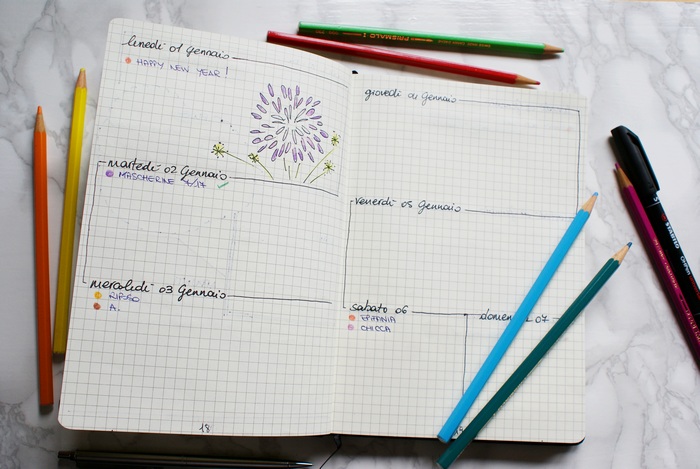 lunedì 01 Gennaio
HAPPY NEW YEAR!
martedì 02 Gennaio
MASCHERINE 9/17
mercoledì 03 Gennaio
RIPOSO
A.
18
giovedì 04 Gennaio
venerdì 05 Gennaio
sabato 06
EPIFANIA
CHICCA
07
PRISMALO I